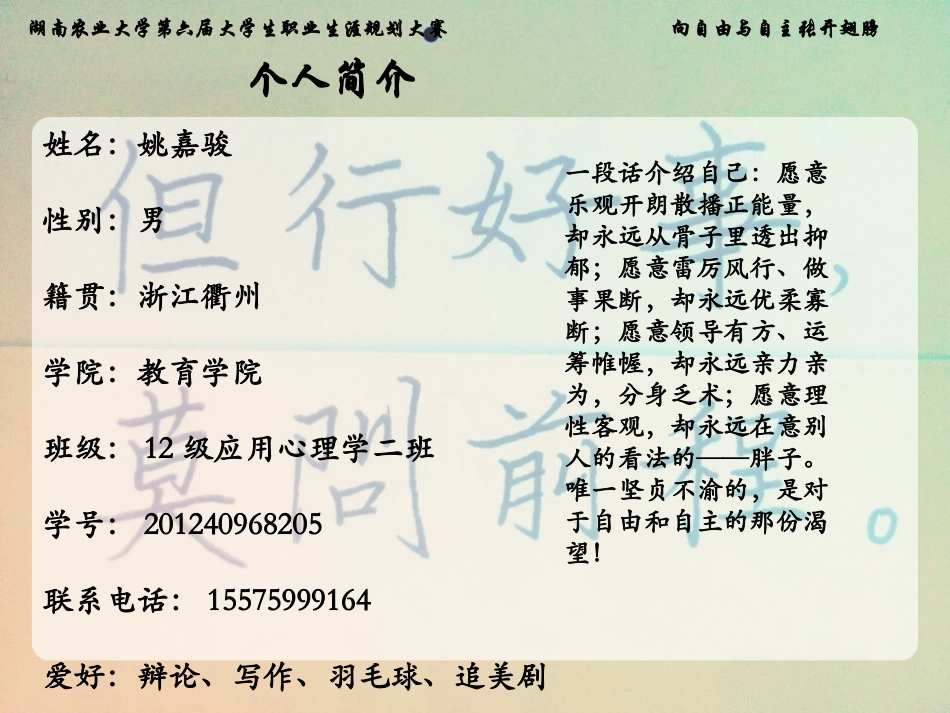 湖南农业大学第六届大学生职业生涯规划大赛
向自由与自主张开翅膀
个人简介
姓名：姚嘉骏
性别：男
籍贯：浙江衢州
学院：教育学院
班级： 12 级应用心理学二班
学号： 201240968205
联系电话： 15575999164
爱好：辩论、写作、羽毛球、追美剧
一段话介绍自己：愿意
乐观开朗散播正能量，
却永远从骨子里透出抑
郁；愿意雷厉风行、做
事果断，却永远优柔寡
断；愿意领导有方、运
筹帷幄，却永远亲力亲
为，分身乏术；愿意理
性客观，却永远在意别
人的看法的——胖子。
唯一坚贞不渝的，是对
于自由和自主的那份渴
望！
但行好事，
莫問前程。